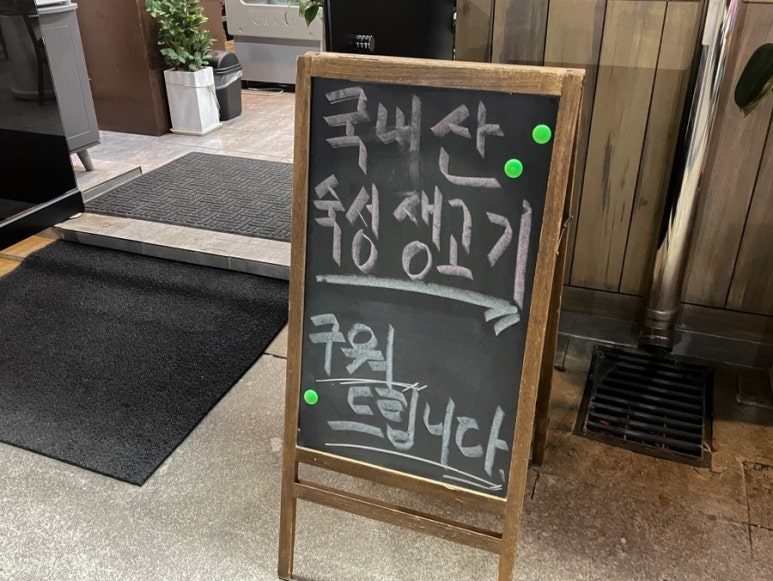 국내산
숙성 생고기
구워
드립니다.